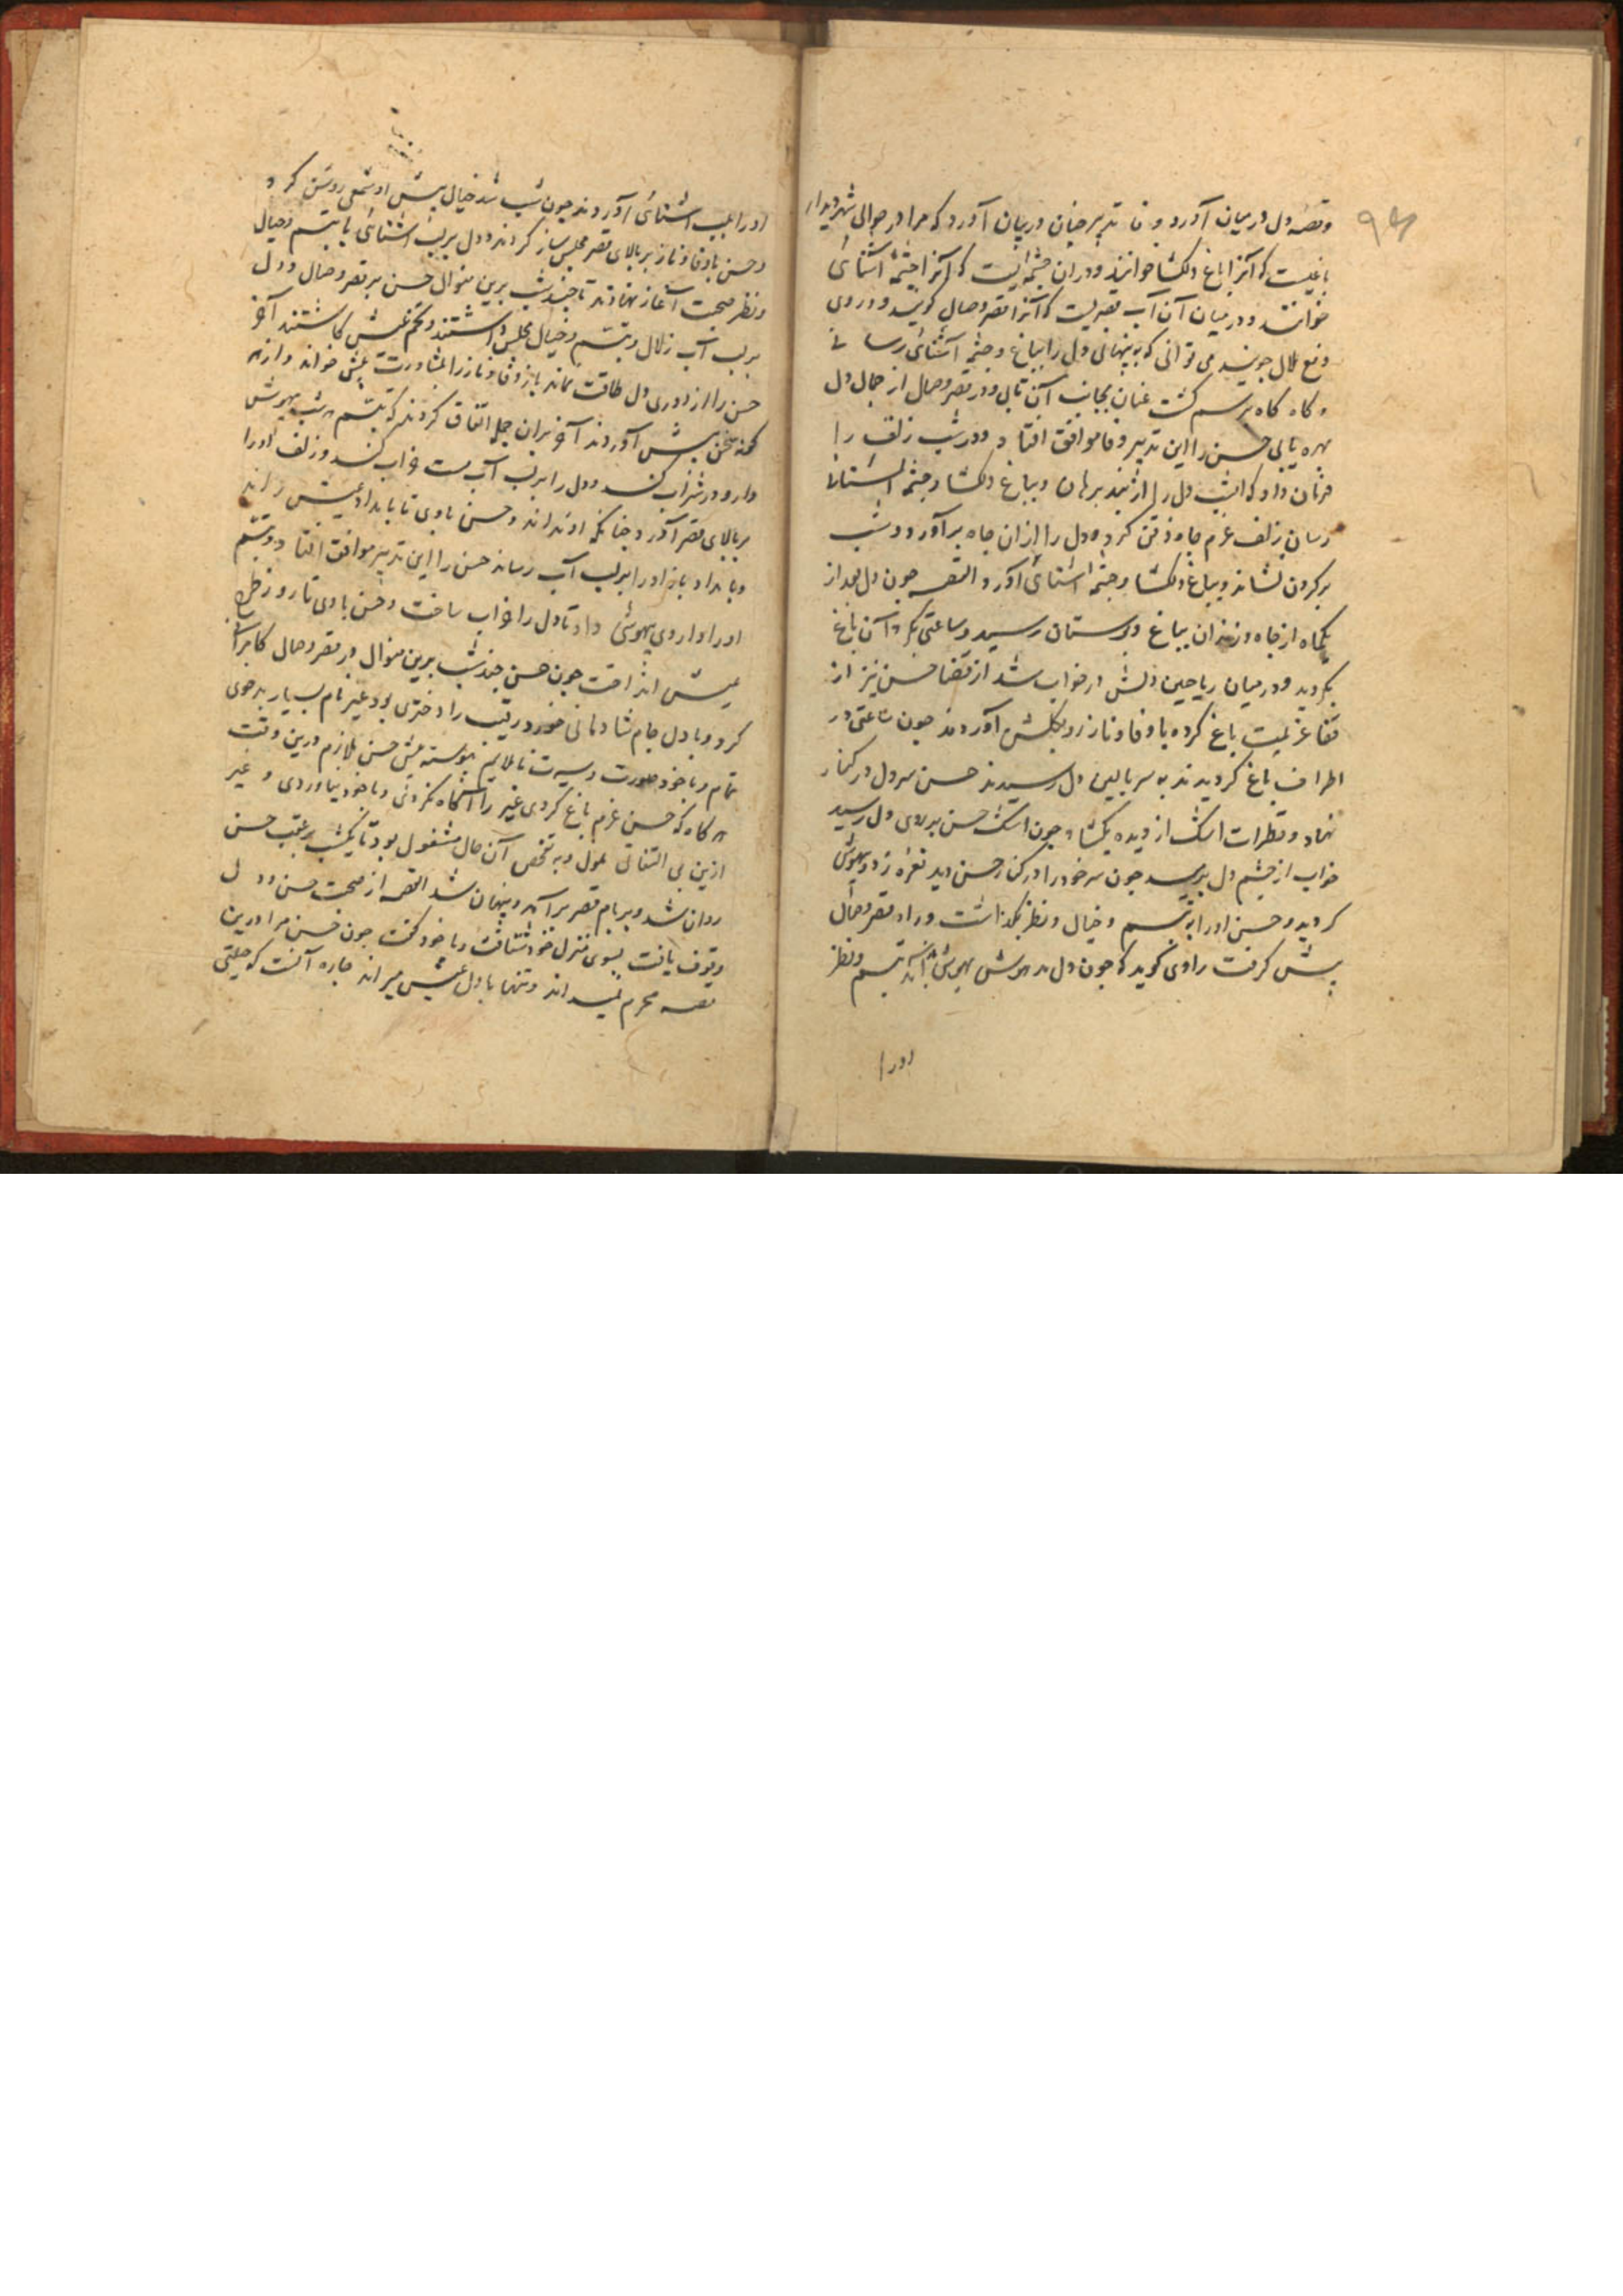 وقصه دل در میان آورد وفا تدبیر چنان در میان آورد که مرا در حوالی شهر دیدار
باغیست که آنرا باغ دلکشا خوانند و دران چشمه ایست که آنرا چشمه آشنائی
خوانند و در میان آن آب قصریست که آنرا قصر وصال گویند و در وی
دفع ملال جویند می توانی که به پنهانی دل را بباغ و چشمه آشنائی رسانی
و گاه گاه برسم گشت عنان بجانب آن تابی و در قصر وصال از جمال دل
بهره یابی حسن را این تدبیر وفا موافق افتاد و در شب زلف را
فرمان داد که امشب دل را از بند برهان و بباغ دلکشا و چشمه آشنائی
رسان زلف عزم چاه ذقن کرد و دل را ازان چاه برآورد و شب
بر گردن نشاند و بباغ دلکشا و چشمه آشنائی آورد القصه چون دل بعد از
یکماه از چاه و زندان بباغ و بوستان رسید و ساعتی بگرد آن باغ
بگردید و در میان ریاحین دلش در خواب شد از قضا حسن نیز از
قفا عزیمت باغ کرده با وفا و ناز رو بگلشن آوردند چون ساعتی در
اطراف باغ گردیدند به سر بالین دل رسیدند حسن سر دل در کنار
نهاد و قطرات اشک از دیده بگشاد چون اشک حسن بر روی دل رسید
خواب از چشم دل بپرید چون سر خود را در کنار حسن دید نعره زد و بیهوش
گردید و حسن او را به تبسم و خیال و نظر بگذاشت و راه قصر وصال
پیش گرفت راوی گوید که چون دل مدهوش بهوش آمد تبسم و نظر
اورا
او را بلب آشنائی آوردند چون شب شد خیال پیش او شمعی روشن کرد
و حسن با وفا و ناز بر بالای قصر مجلس ساز کردند و دل بر لب آشنائی با تبسم و خیال
و نظر صحبت آغاز نهادند تا چند شب برین منوال حسن بر قصر وصال و دل
بر لب آب زلال و تبسم و خیال مجلس داشتند و تخم عیش کاشتند آخر
حسن را از دوری دل طاقت نماند باز وفا و ناز را بمشاورت پیش خواند و از هر
گونه سخن پیش آوردند آخر بران جمله اتفاق کردند که تبسم هر شب بیهوش
دارو در شراب کند و دل را بر لب آب مست خواب کند و زلف او را
بر بالای قصر آورد چنانکه او نداند و حسن با وی تا بامداد عیش راند
و بامداد باز او را بر لب آب رساند حسن را این تدبیر موافق افتاد و تبسم
او را داروی بیهوشی داد تا دل را خواب ساخت و حسن با وی تا روز طرح
عیش انداخت چون حسن چند شب برین منوال در قصر وصال کامرانی
کرد و با دل جام شادمانی خورد رقیب را دختری بود غیر نام بسیار بدخوی
تمام و با خود صورت و سیرت ناملایم پیوسته پیش حسن ملازم درین وقت
هر گاه که حسن عزم باغ کردی غیر را آگاه نکردی و با خود نیاوردی و غیر
ازین بی التفاتی ملول و به تفحص آن حال مشغول بود تا یکشب بر عقب حسن
روان شد و بر بام قصر برآمد و پنهان شد القصه از صحبت حسن و دل
وقوف یافت بسوی منزل خود شتافت و با خود گفت چون حسن مرا درین
قصه محرم نمیداند و تنها با دل عیش میراند چاره آنست که حیلتی